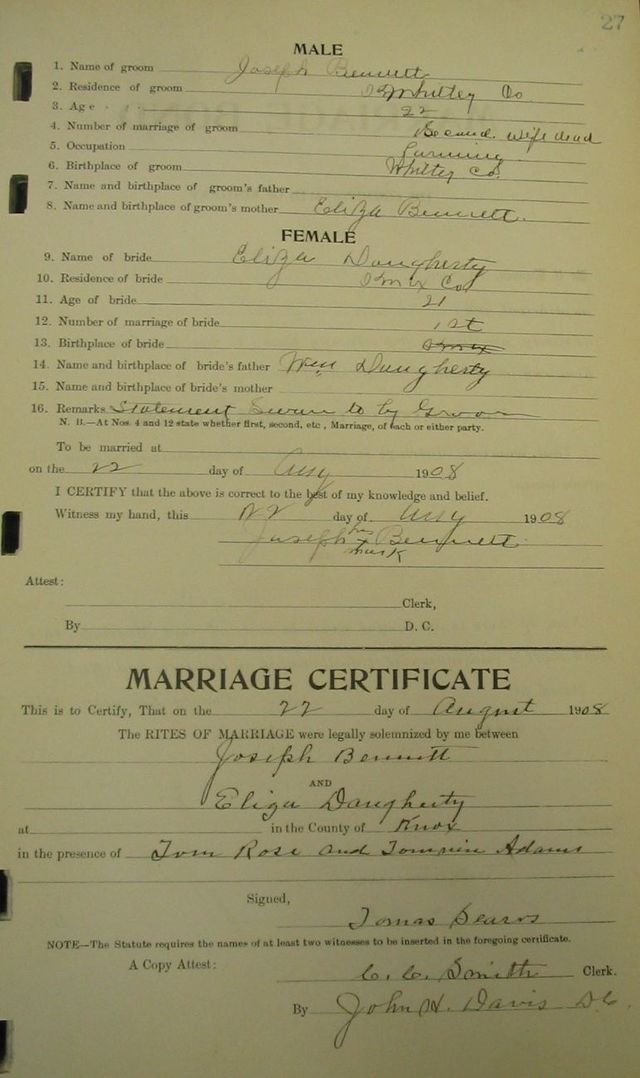 27
MALE
1. Name of groom Joseph Bennett
2. Residence of groom Whitley Co
3. Age 22
4. Number of marriage of groom Second. wife dead
5. Occupation Farming
6. Birthplace of groom Whitley Co.
7. Name and birthplace of groom's father
8. Name and birthplace of groom's mother Eliza Bennett.
FEMALE
9. Name of bride Eliza Daugherty
10. Residence of bride Knox Co
11. Age of bride 21
12. Number of marriage of bride 1st
13. Birthplace of bride Knox
14. Name and birthplace of bride's father Wm Daugherty
15. Name and birthplace of bride's mother
16. Remarks Statement Swarn to by Groom
N. B.—At Nos. 4 and 12 state whether first, second, etc., Marriage, of each or either party.
To be married at
on the 22 day of Aug 1908
I CERTIFY that the above is correct to the best of my knowledge and belief.
Witness my hand, this 22 day of Aug 1908
Joseph his Bennett
mark
Attest:
Clerk,
By D. C.
MARRIAGE CERTIFICATE
This is to Certify, That on the 22 day of August 1908
The RITES OF MARRIAGE were legally solemnized by me between
Joseph Bennett
AND
Eliza Daugherty
at in the County of Knox
in the presence of Tom Rose and Adams
Signed,
Tomas Sears
NOTE—The Statute requires the names of at least two witnesses to be inserted in the foregoing certificate.
A Copy Attest: C. C. Smith Clerk.
By John H. Davis D C